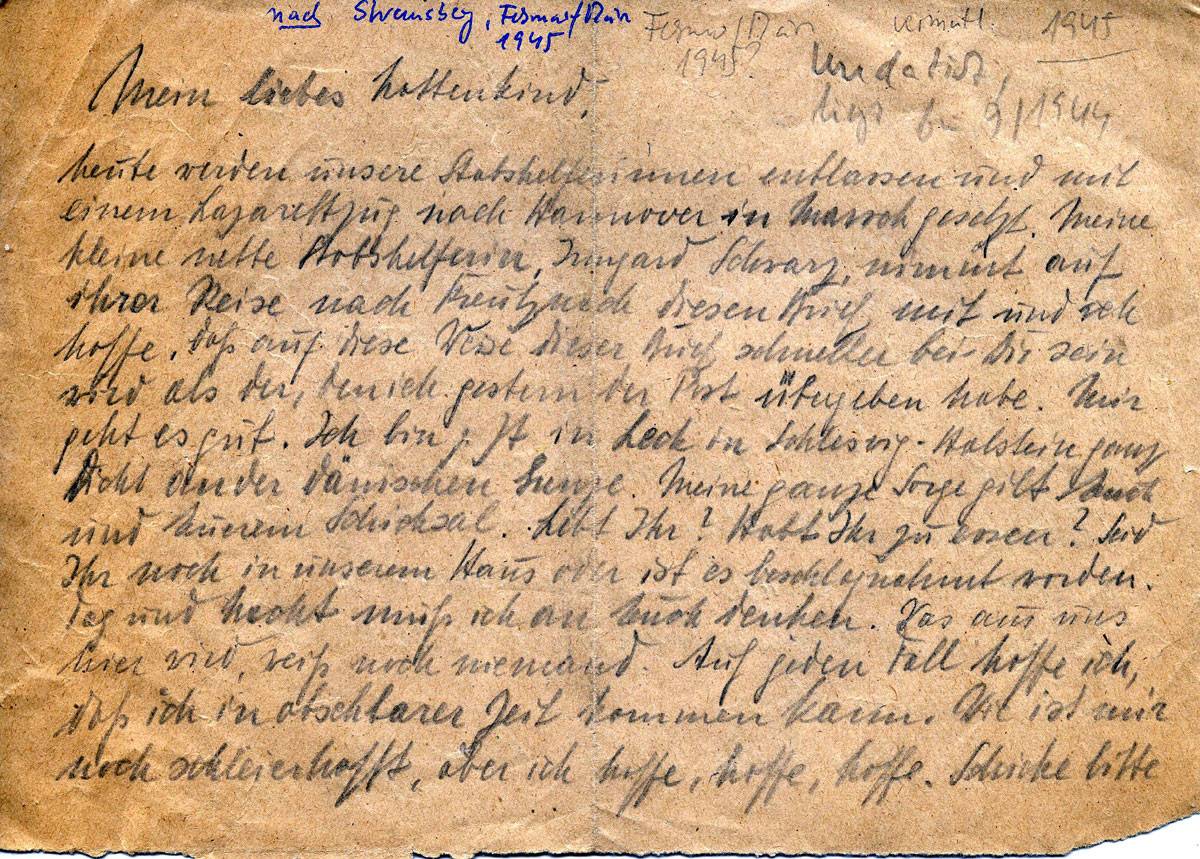 nach Strausberg, Februar/März
1945
Februar/März
1945?
vermutl. 1945
Undatiert,
liegt bei 9/1944
Mein liebes Lottenkind,
heute werden unsere Stabshelferinnen entlassen und mit
einem Lazarettzug nach Hannover in Marsch gesetzt. Meine
kleine nette Stabshelferin, Irmgard Schwarz, nimmt auf
ihrer Reise nach Kreutznach diesen Brief mit und ich
hoffe, daß auf diese Weise dieser Brief schneller bei Dir sein
wird als der, den ich gestern der Post übergeben habe. Mir
geht es gut. Ich bin z. Zt. in Leck in Schleswig-Holstein ganz
dicht an der dänischen Grenze. Meine ganze Sorge gilt Euch
und Eurem Schicksal. Lebt Ihr? Habt Ihr zu essen? Seid
Ihr noch in unserem Haus oder ist es beschlagnahmt worden.
Tag und Nacht muß ich an Euch denken. Was aus uns
hier wird, weiß noch niemand. Auf jeden Fall hoffe ich,
daß ich in absehbarer Zeit kommen kann. Wie ist mir
noch schleierhaft, aber ich hoffe, hoffe, hoffe. Schicke bitte